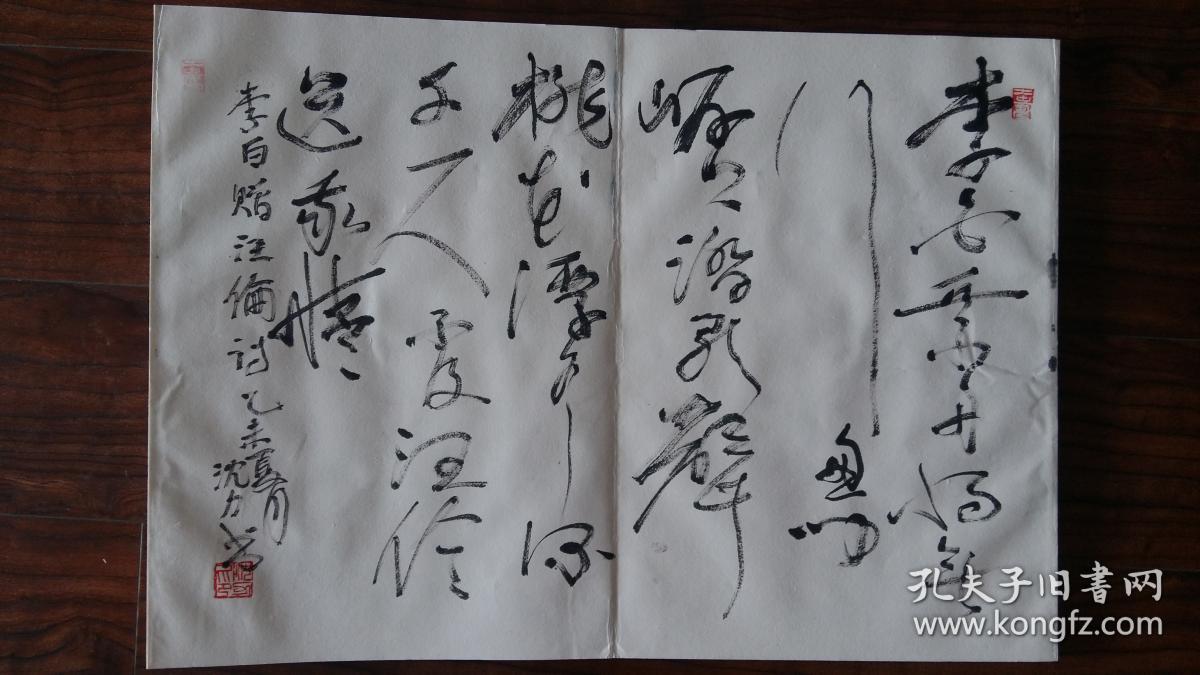 李白乘舟将欲
行忽闻
岸上踏歌聲
桃花潭水深
千尺不及汪伦
送我情
李白赠汪倫诗乙未夏月
沈力书
孔夫子旧书网
www.kongfz.com